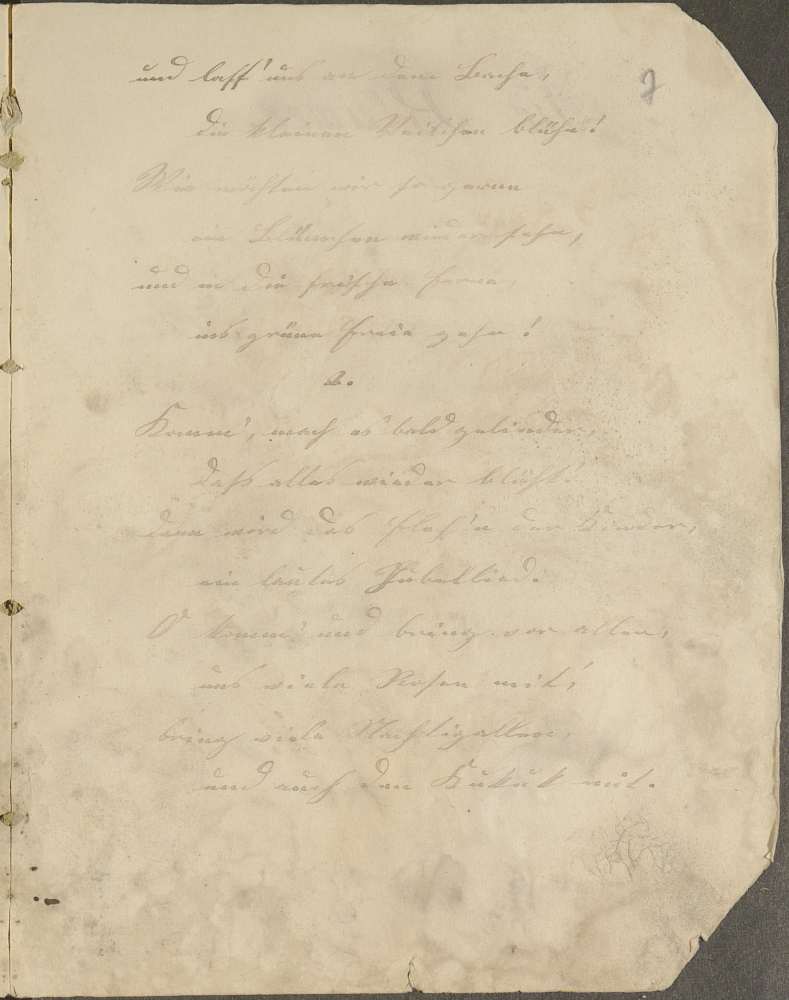 7
und lass' uns an dem Bache,
die kleinen Veilchen blühn!
Wie möchten wir so gerne
ein Blümchen wiedersehn,
und in die frische Ferne,
ins grüne Freie gehn!
2.
Komm', mach es bald gelinder,
dass alles wieder blüht!
dann wird das Fleh'n der Kinder,
ein lautes Jubellied.
O komm' und bring vor allen,
uns viele Rosen mit,
bring viele Nachtigallen,
und auch den Kukuk mit.